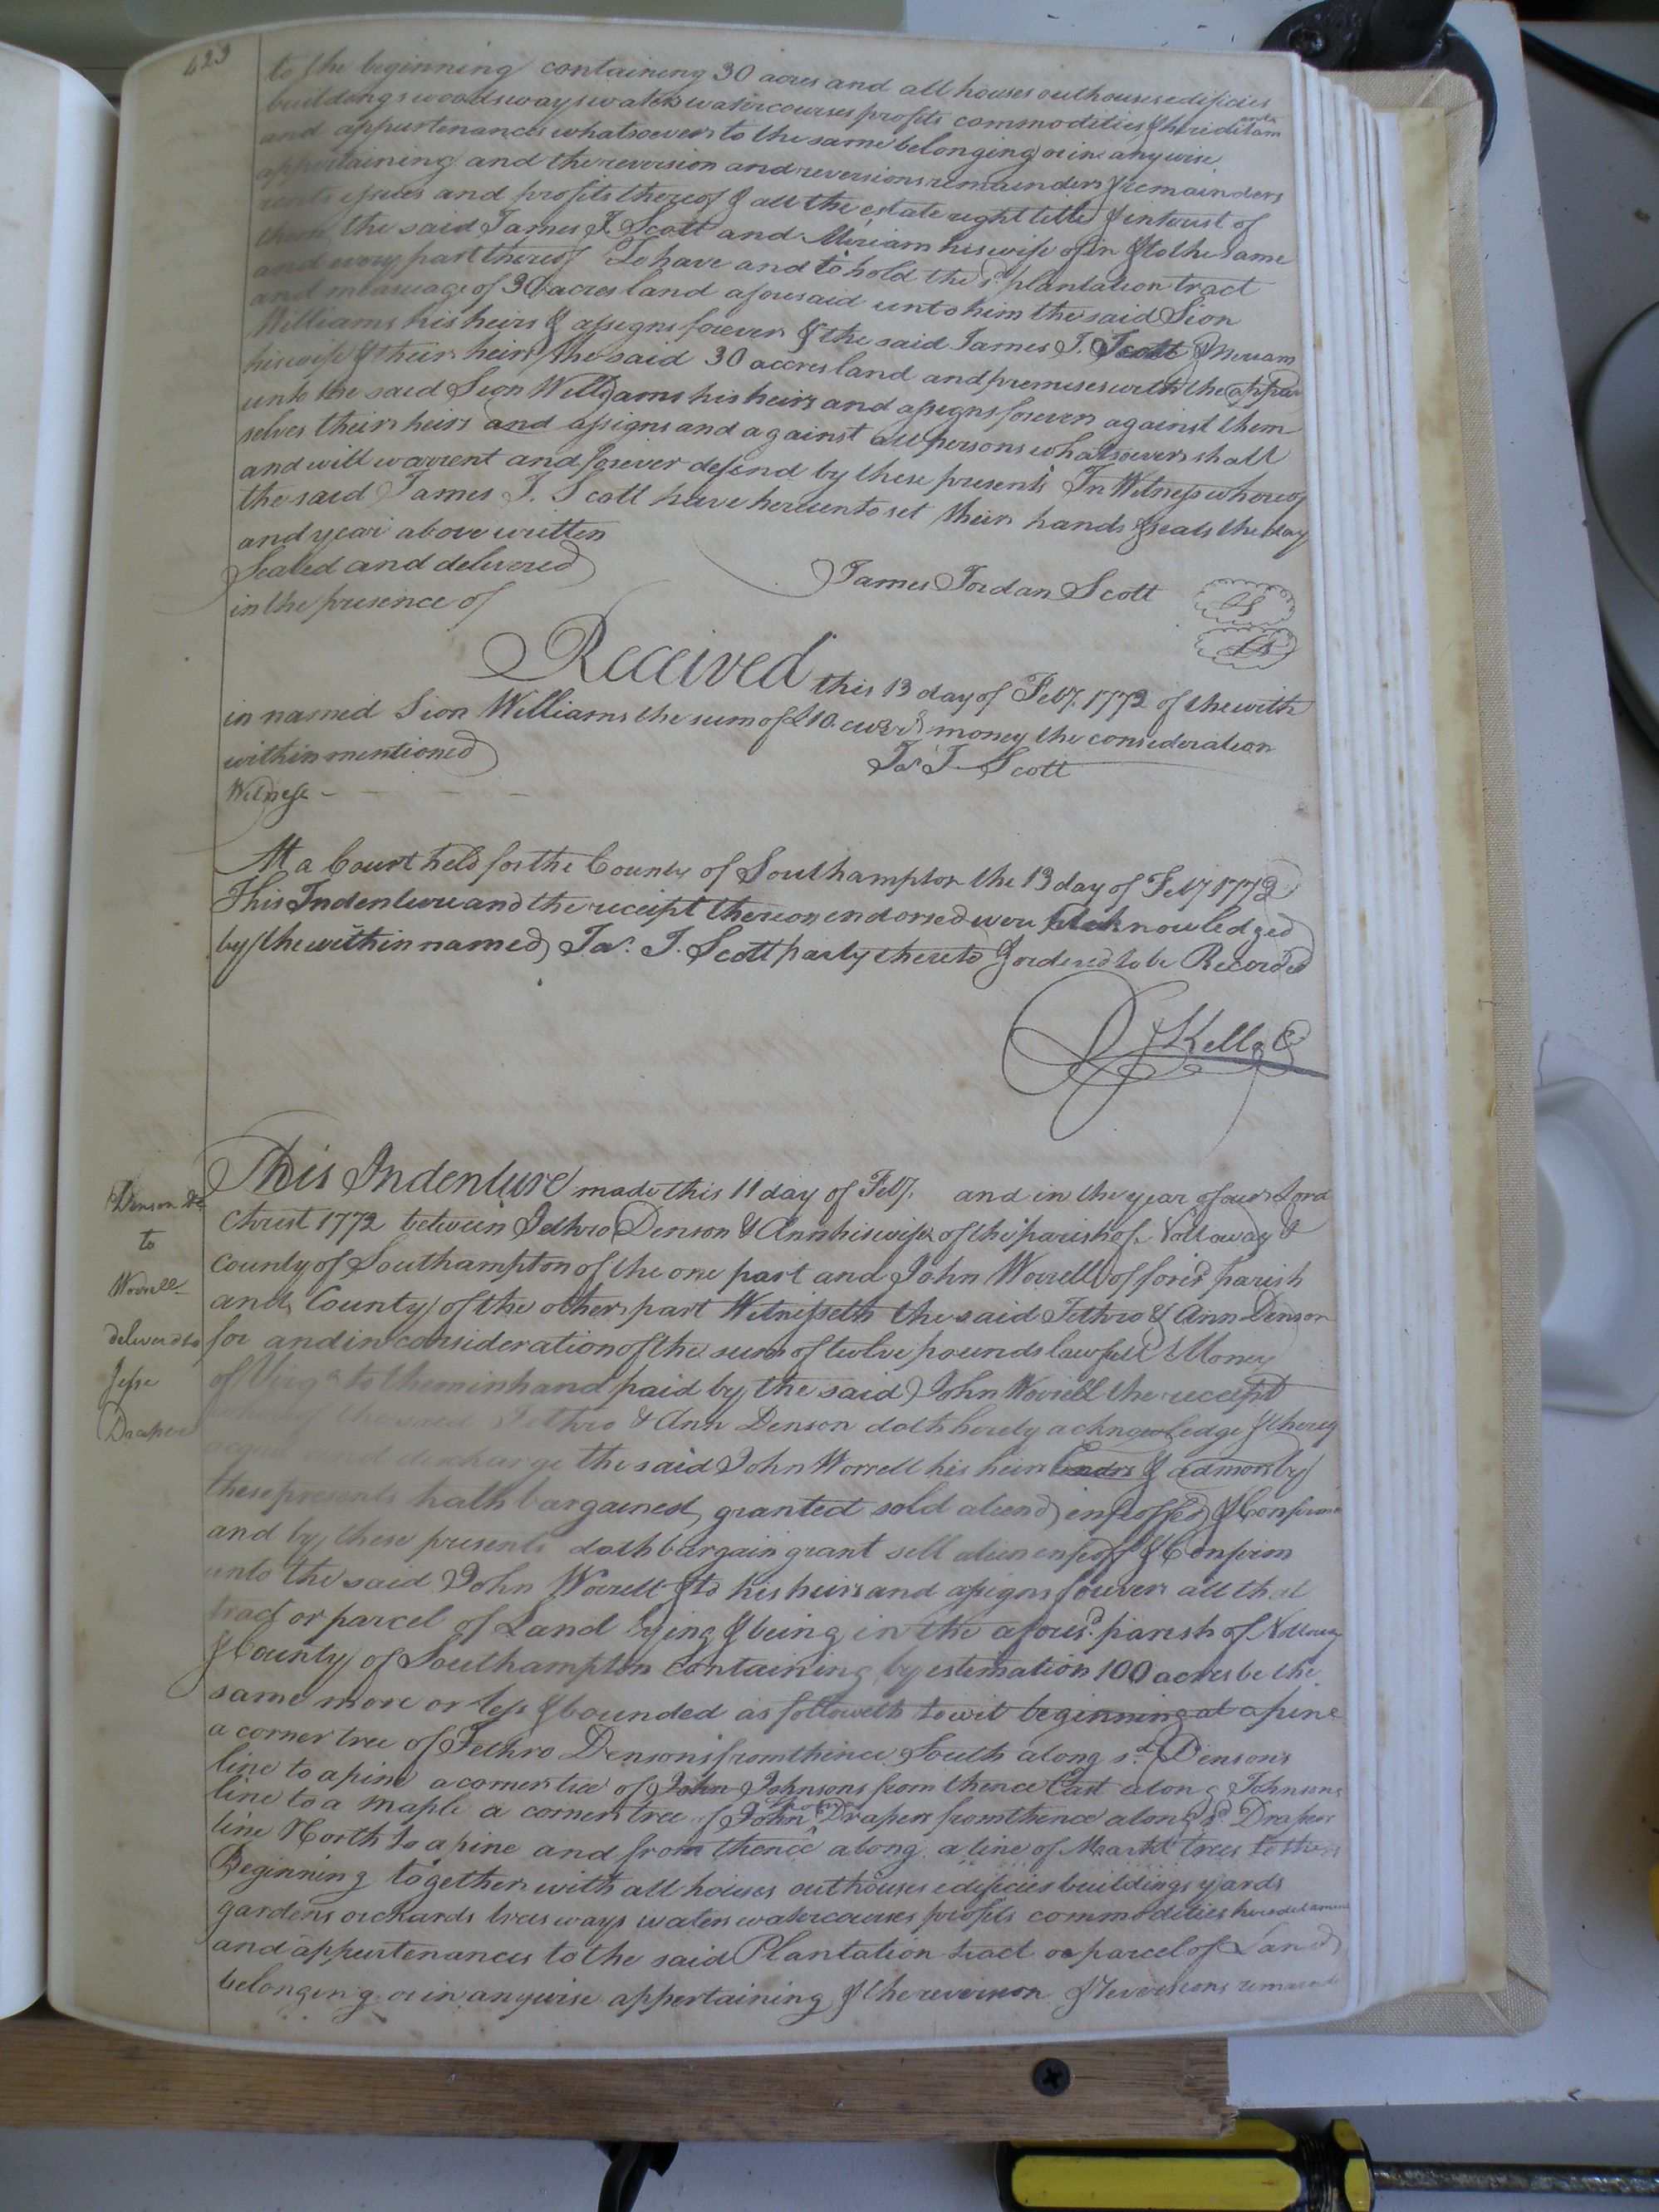 423
to the beginning containing 30 acres and all houses outhouses edificies
buildings woods ways waters watercourses profits commodities & hereditam
ents
and appurtenances whatsoever to the same belonging or in anywise
appertaining and the reversion and reversions remainders & remainders
rents issues and profits thereof & all the estate right title & interest of
them the said James J. Scott and Miriam his wife of in & to the same
and every part thereof To have and to hold the sd. plantation tract
and messuage of 30 acres land aforesaid unto him the said Sion
Williams his heirs & assigns forever & the said James J. Scott & Meriam
his wife & their heirs the said 30 accres land and premises with the appur
unto the said Sion Williams his heirs and assigns forever against them
selves their heirs and assigns and against all persons whatsoever shall
and will warrent and forever defend by these presents In Witness whereof
the said James J. Scott have hereunto set their hands & seals the day
and year above written
Sealed and delivered
in the presence of
James Jordan Scott LS
LS
Received this 13 day of Feby. 1772 of the with
in named Sion Williams the sum of £10. curr't money the consideration
within mentioned
Jas. J. Scott
Witness
At a Court held for the County of Southampton the 13 day of Feby 1772
This Indenture and the receipt thereon endorsed were Acknowledged
by the within named Jas. J. Scott party thereto & ordered to be Recorded
Kello C
Denson &c
to
Worrell
deliver'd to
Jesse
Draper
This Indenture made this 11 day of Feby. and in the year of our Lord
Christ 1772 between Jethro Denson & Ann his wife of the parish of Nottoway &
County of Southampton of the one part and John Worrell of fores'd parish
and County of the other part Witnesseth the said Jethro & Ann Denson
for and in consideration of the sum of twelve pounds lawfull Money
of Virga to them in hand paid by the said John Worrell the receipt
whereof the said Jethro & Ann Denson doth hereby acknowledge & thereof
acquit and discharge the said John Worrell his heirs & admors by
these presents hath bargained, granted sold aliend, enfeoffed & Confirmd
and by these presents doth bargain grant sell alien enfeoff & Confirm
unto the said John Worrell & to his heirs and assigns forever all that
tract or parcel of Land lying & being in the afores'd. parish of Nottoway
& County of Southampton containing by estimation 100 acres be the
same more or less & bounded as followeth to wit beginning at a pine
a corner tree of Jethro Denson's from thence South along sd. Denson's
line to a pine a corner tree of John Johnsons from thence East along Johnsons
line to a maple a corner tree of John Draper from thence along sd. Draper
line North to a pine and from thence along a line of Markt trees to the
Beginning together with all houses outhouses edificies buildings yards
gardens orchards trees ways waters watercourses profits commodities hereditaments
and appurtenances to the said Plantation tract or parcel of Land
belonging or in anywise appertaining & the reversion & reversions remaind